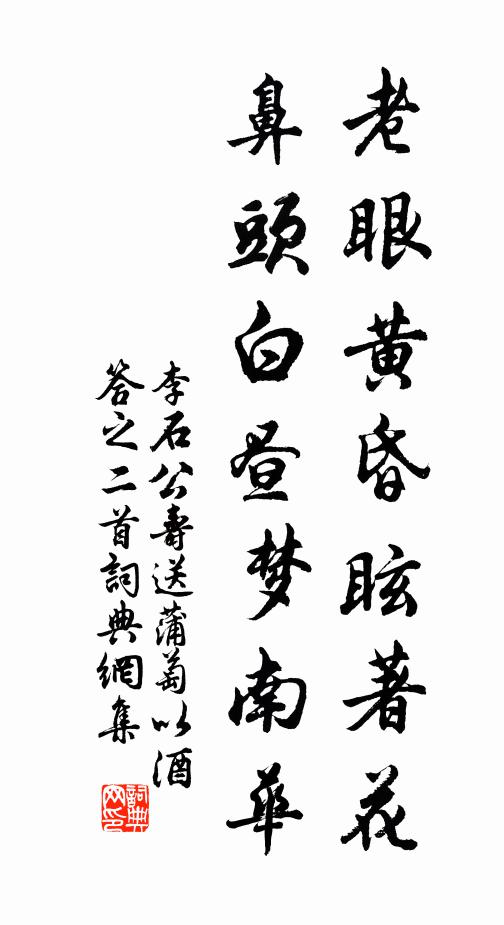 老眼黄昏眩著花
鼻頭白昼梦南華
李石公壽送蒲萄以酒
答之二首詞典網集
詞典网印